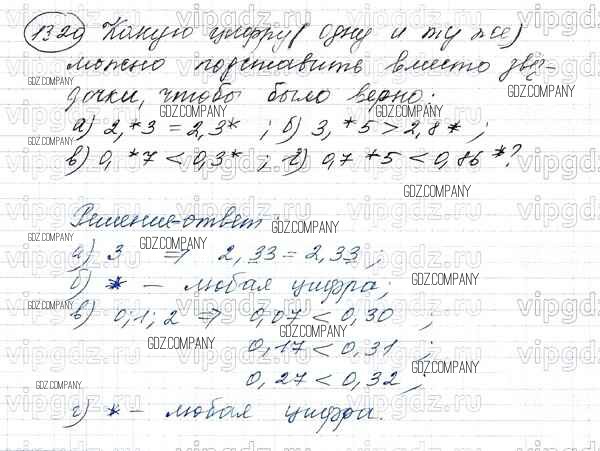 1320 Какую цифру (одну и ту же)
можно подставить вместо звёз-
дочки, чтобы было верно:
а) 2,*3 = 2,3* ; б) 3,*5 > 2,8* ;
в) 0,*7 < 0,3* ; г) 0,7*5 < 0,86*?
Решение-ответ:
а) 3 => 2,33 = 2,33 ;
б) * – любая цифра;
в) 0; 1; 2 => 0,07 < 0,30 ;
0,17 < 0,31 ;
0,27 < 0,32 ;
г) * – любая цифра.
GDZ.COMPANY
vipgdz.ru